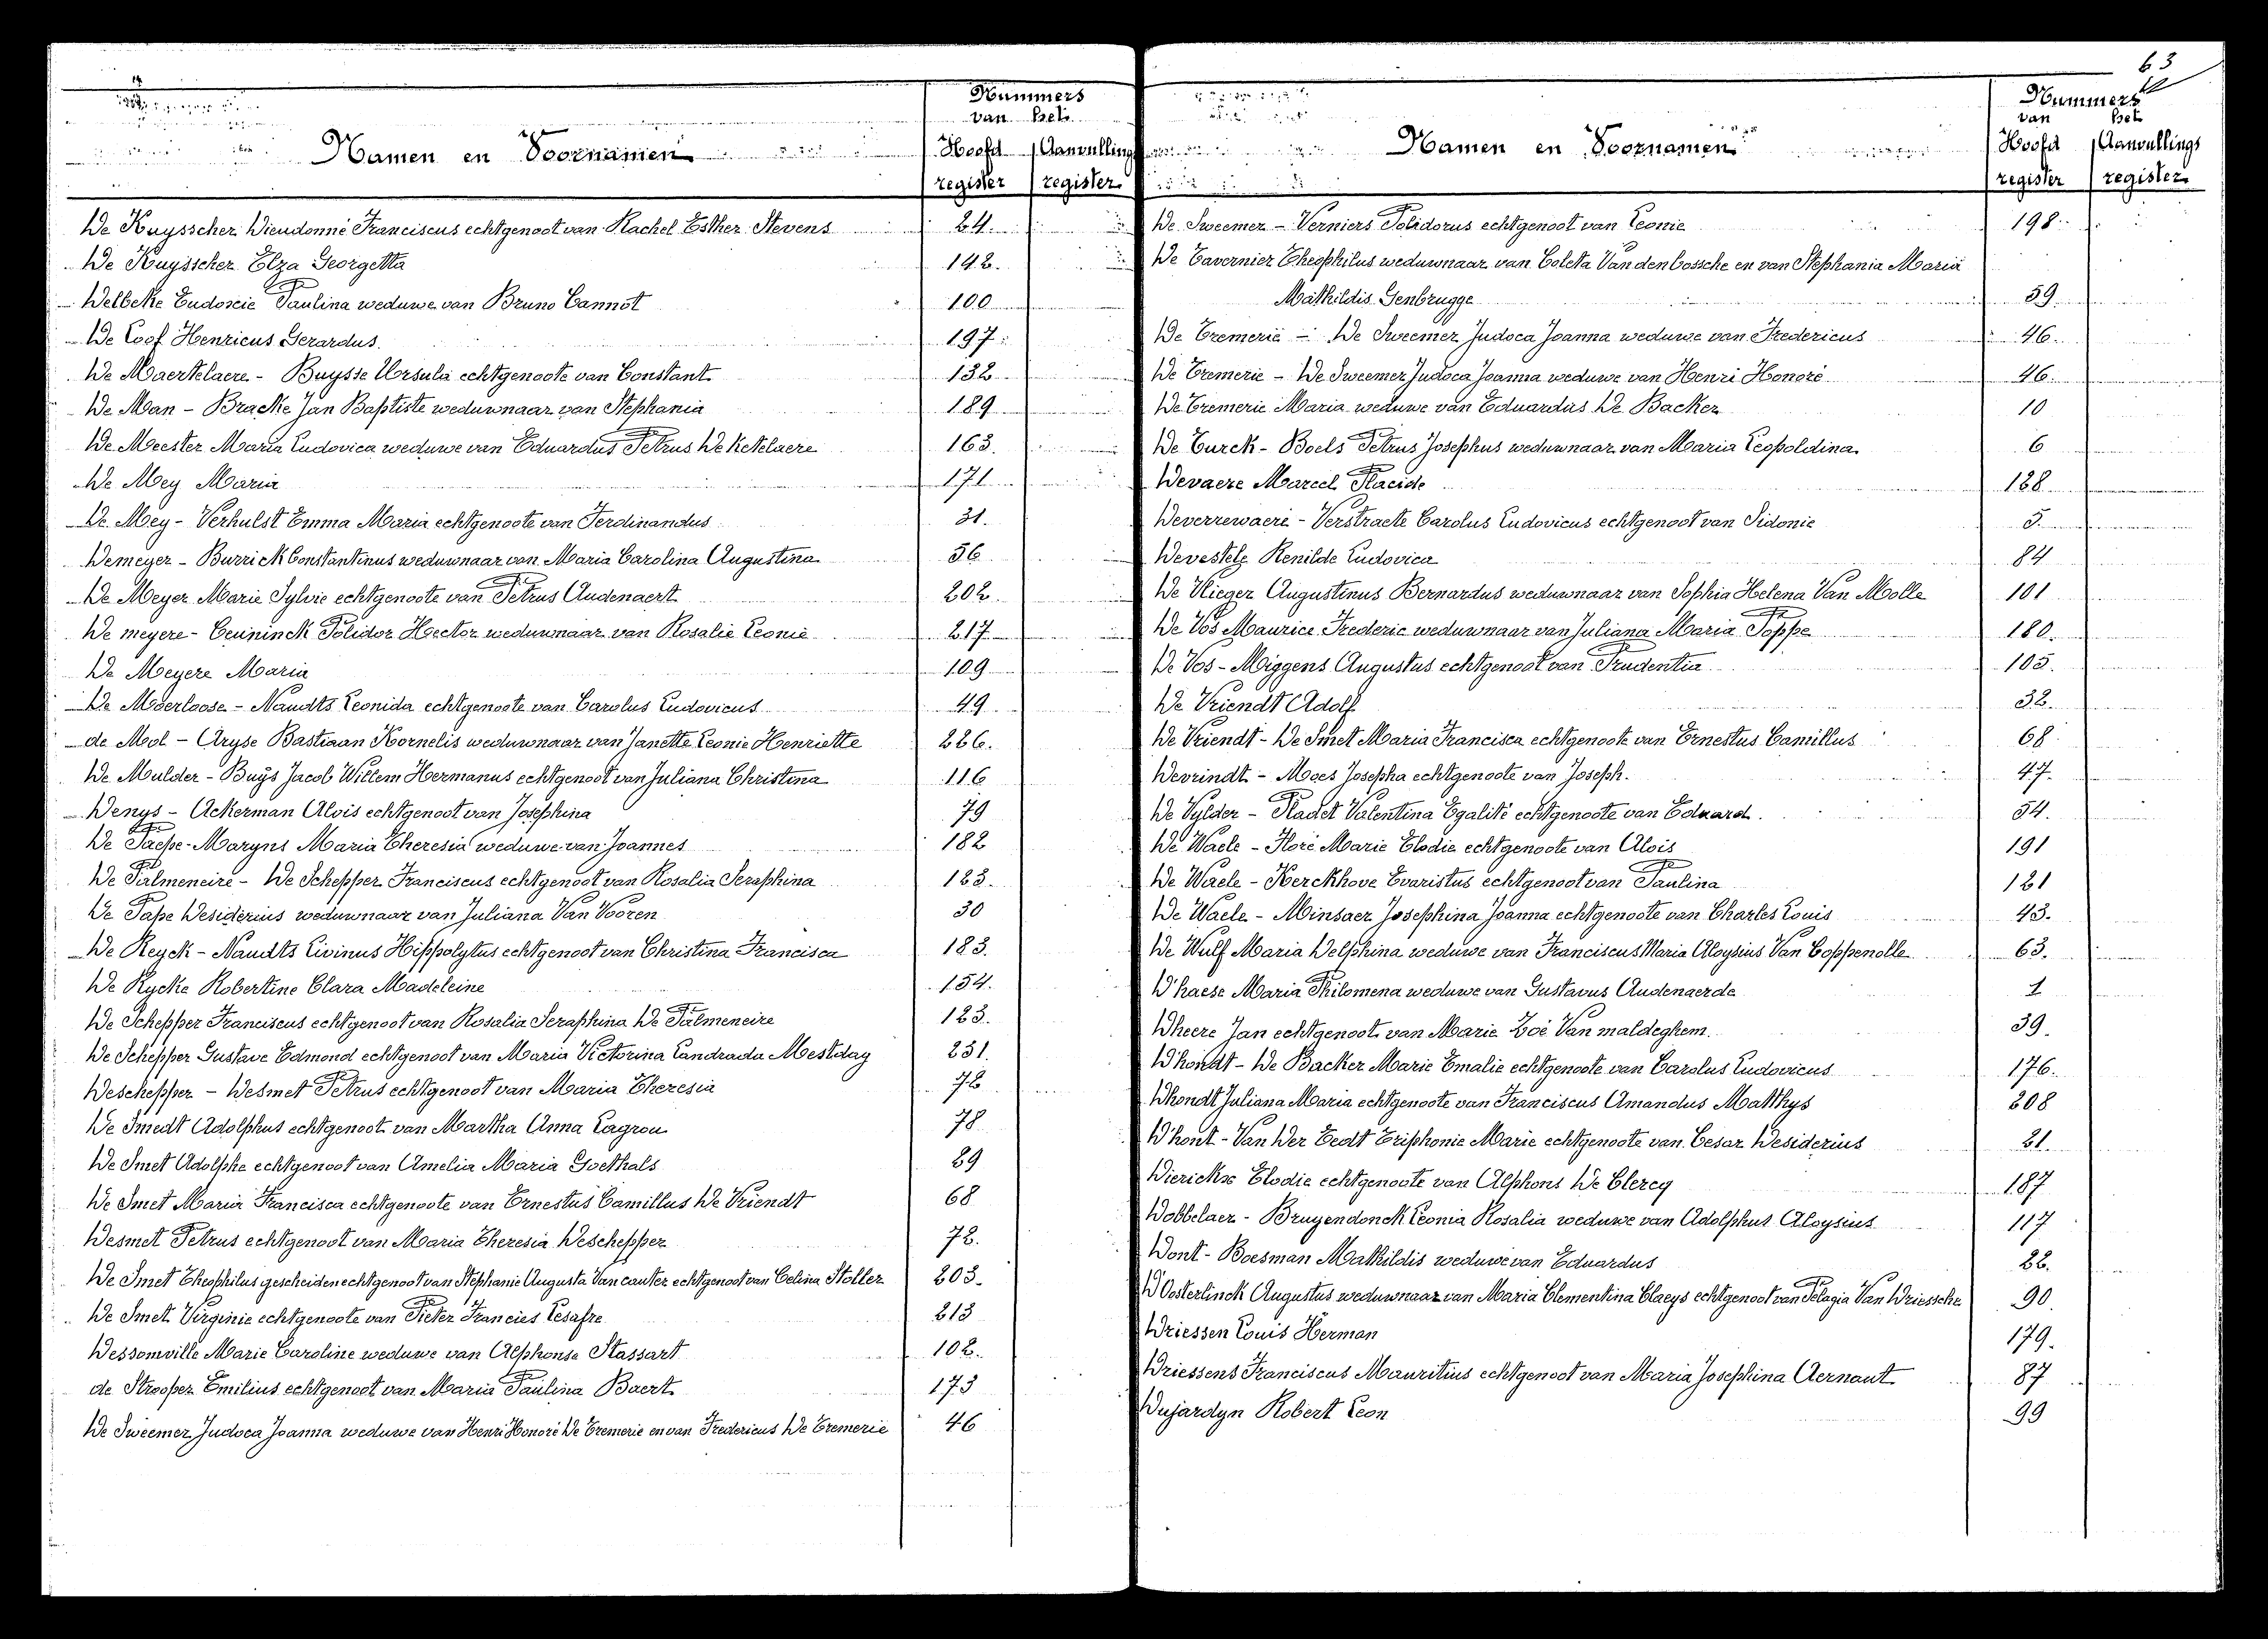 63
Nummers
van het
Namen en Voornamen
Hoofd Aanvullings
register register
De Kuysscher Dieudonné Franciscus echtgenoot van Rachel Esther Stevens 24.
De Kuysscher Elza Georgetta 142.
Delbeke Eudoxie Paulina weduwe van Bruno Cannot 100
De Loof Henricus Gerardus. 197.
De Maertelaere - Buysse Ursula echtgenoote van Constant 132
De Man - Bracke Jan Baptiste weduwnaar van Stephania 189
De Meester Maria Ludovica weduwe van Eduardus Petrus De Ketelaere 163.
De Mey Maria 171
De Mey - Verhulst Emma Maria echtgenoote van Ferdinandus 31.
Demeyer - Burrick Constantinus weduwnaar van Maria Carolina Augustina 56
De Meyer Marie Sylvie echtgenoote van Petrus Audenaert 202.
De meyere - Ceuninck Polidor Hector weduwnaar van Rosalie Leonie 217
De Meyere Maria 109
De Moerloose - Naudts Leonida echtgenoote van Carolus Ludovicus 49
de Mol - Aryse Bastiaan Kornelis weduwnaar van Janette Leonie Henriette 226.
De Mulder - Buÿs Jacob Willem Hermanus echtgenoot van Juliana Christina 116
Denys - Ackerman Alois echtgenoot van Josephina 79
De Paepe - Maryns Maria Theresia weduwe van Joannes 182
De Palmeneire - De Schepper Franciscus echtgenoot van Rosalia Seraphina 123.
De Pape Desiderius weduwnaar van Juliana Van Vooren 30
De Reyck - Naudts Livinus Hippolytus echtgenoot van Christina Francisca 183.
De Rycke Robertine Clara Madeleine 154.
De Schepper Franciscus echtgenoot van Rosalia Seraphina De Palmeneire 123.
De Schepper Gustave Edmond echtgenoot van Maria Victorina Landrada Mestdag 231.
Deschepper - Desmet Petrus echtgenoot van Maria Theresia 72
De Smedt Adolphus echtgenoot van Martha Anna Lagrou 78
De Smet Adolphe echtgenoot van Amelia Maria Goethals 29
De Smet Maria Francisca echtgenoote van Ernestus Camillus De Vriendt 68
Desmet Petrus echtgenoot van Maria Theresia Deschepper 72.
De Smet Theophilus gescheiden echtgenoot van Stephanie Augusta Van cauter echtgenoot van Celina Stoller 203.
De Smet Virginie echtgenoote van Pieter Francies Lesafre 213
Dessomville Marie Caroline weduwe van Alphonse Stassart 102.
de Strooper Emilius echtgenoot van Maria Paulina Baert 173
De Sweemer Judoca Joanna weduwe van Henri Honoré De Tremerie en van Fredericus De Tremerie 46
Nummers
van het
Namen en Voornamen
Hoofd Aanvullings
register register
De Sweemer - Verniers Polidorus echtgenoot van Leonie 198.
De Tavernier Theophilus weduwnaar van Coleta Van den bossche en van Stephania Maria
Mathildis Genbrugge 59
De Tremerie - De Sweemer Judoca Joanna weduwe van Fredericus 46.
De Tremerie - De Sweemer Judoca Joanna weduwe van Henri Honoré 46.
De Tremerie Maria weduwe van Eduardus De Backer 10
De Turck - Boels Petrus Josephus weduwnaar van Maria Leopoldina 6
Devaere Marcel Placide 128
Deverrewaere - Verstraete Carolus Ludovicus echtgenoot van Sidonie 5.
Devestele Renilde Ludovica 84
De Vlieger Augustinus Bernardus weduwnaar van Sophia Helena Van Molle 101
De Vos Maurice Frederic weduwnaar van Juliana Maria Poppe 180.
De Vos - Miggens Augustus echtgenoot van Prudentia 105.
De Vriendt Adolf 32.
De Vriendt - De Smet Maria Francisca echtgenoote van Ernestus Camillus 68
Devrindt - Maes Josepha echtgenoote van Joseph. 47.
De Vylder - Pladet Valentina Egalité echtgenoote van Eduard. 54.
De Waele - Floré Marie Elodie echtgenoote van Alois 191
De Waele - Kerckhove Evaristus echtgenoot van Paulina 121
De Waele - Minsaer Josephina Joanna echtgenoote van Charles Louis 43.
De Wulf Maria Delphina weduwe van Franciscus Maria Aloysius Van Coppenolle 63.
D'haese Maria Philomena weduwe van Gustavus Audenaerde 1
Dheere Jan echtgenoot van Marie Zoé Van maldeghem. 39.
D'hondt - De Backer Marie Emalie echtgenoote van Carolus Ludovicus 176.
Dhondt Juliana Maria echtgenoote van Franciscus Amandus Matthys 208
D'hont - Van Der Eedt Triphonie Marie echtgenoote van Cesar Desiderius 21.
Dierickse Elodie echtgenoote van Alphons De Clercq 187
Dobbelaer - Bruyendonck Leonia Rosalia weduwe van Adolphus Aloysius 117
Dont - Boesman Mathildis weduwe van Eduardus 22.
D'Oosterlinck Augustus weduwnaar van Maria Clementina Claeys echtgenoot van Pelagia Van Driessche 90.
Driessen Louis Herman 179.
Driessens Franciscus Mauritius echtgenoot van Maria Josephina Aernaut 87
Dujardyn Robert Leon 99